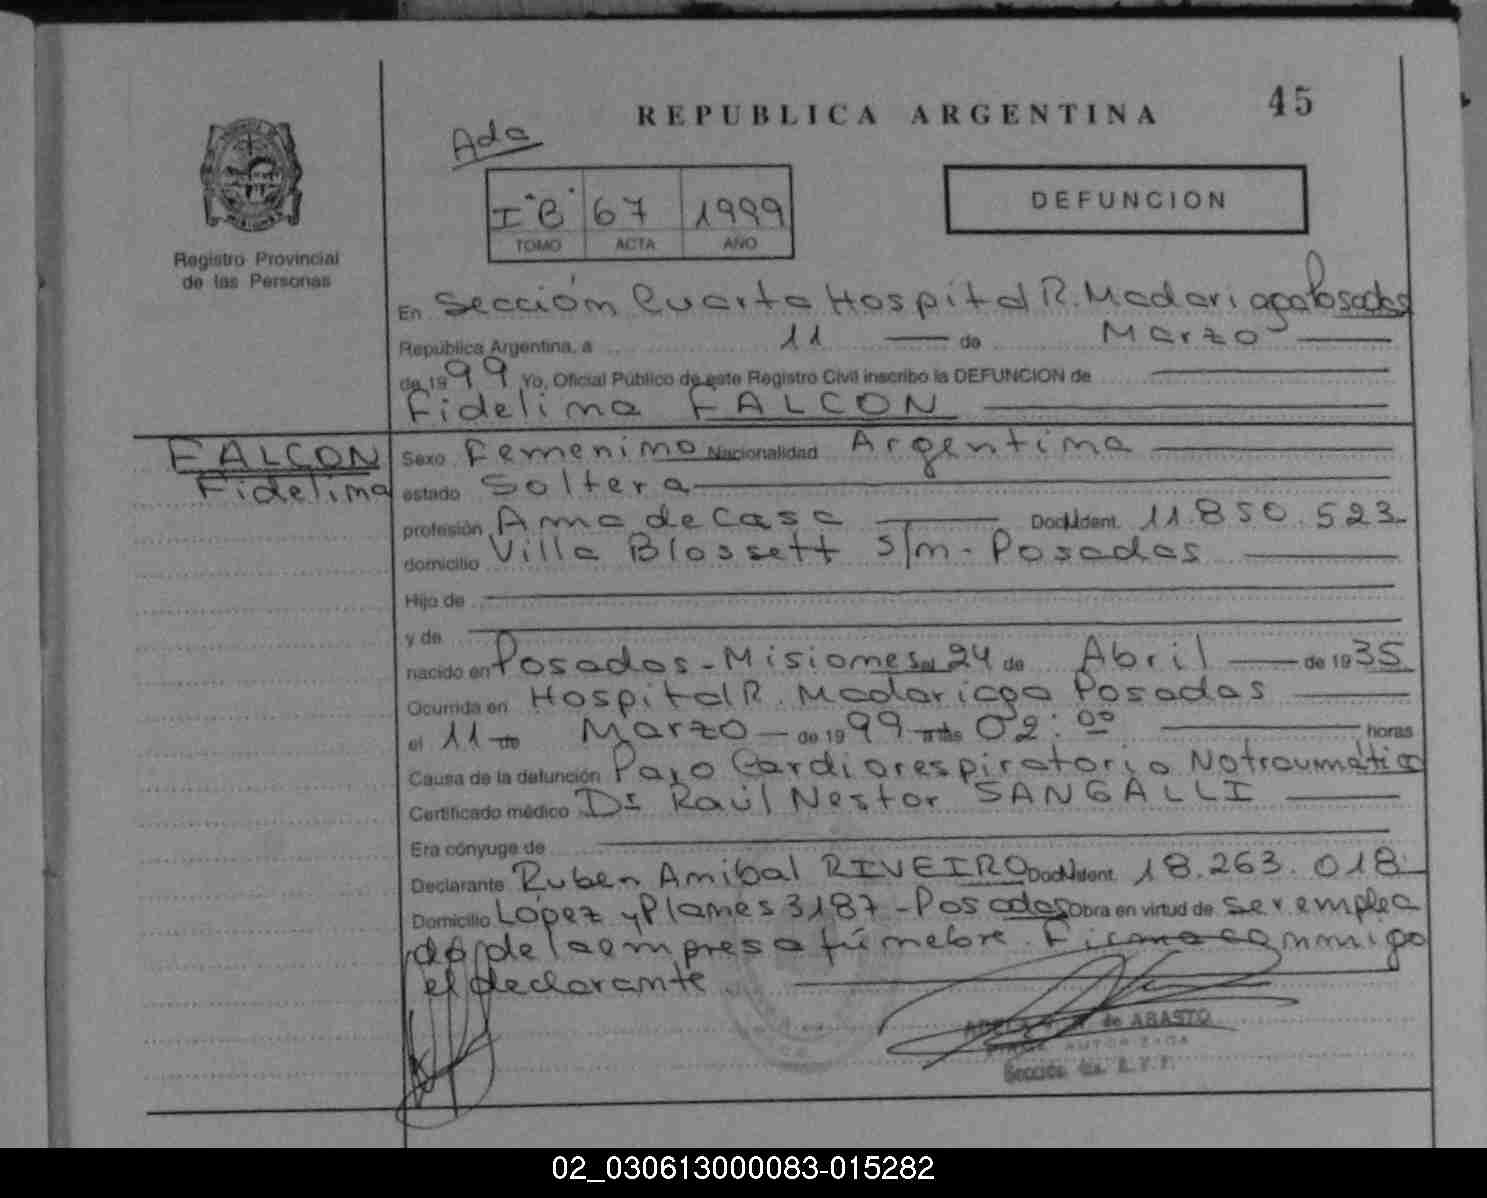 45
REPUBLICA ARGENTINA
Ada
I "B" 67 1999
TOMO ACTA AÑO
DEFUNCION
Registro Provincial
de las Personas
En Sección Cuarta Hospital R. Madariaga Posadas
República Argentina, a 11 de Marzo
de 1999 Yo, Oficial Público de este Registro Civil inscribo la DEFUNCION de
Fidelina FALCON
FALCON
Fidelina
Sexo Femenino Nacionalidad Argentina
estado Soltera
profesión Ama de Casa Doc. Ident. 11.850.523
domicilio Villa Blossett s/n - Posadas
Hijo de
y de
nacido en Posadas - Misiones el 24 de Abril de 1935
Ocurrida en Hospital R. Madariaga Posadas
el 11 de Marzo de 1999 a las 02:00 horas
Causa de la defunción Paro Cardiorespiratorio No traumático
Certificado médico Dr Raúl Nestor SANGALLI
Era cónyuge de
Declarante Ruben Anibal RIVEIRO Doc. Ident. 18.263.018
Domicilio López y Planes 3187 - Posadas Obra en virtud de ser emplea
do de la empresa fúnebre. Firma conmigo
el declarante
de ABASTO
AUTORIZADA
Sección 4ta. R.P.P.
02_030613000083-015282